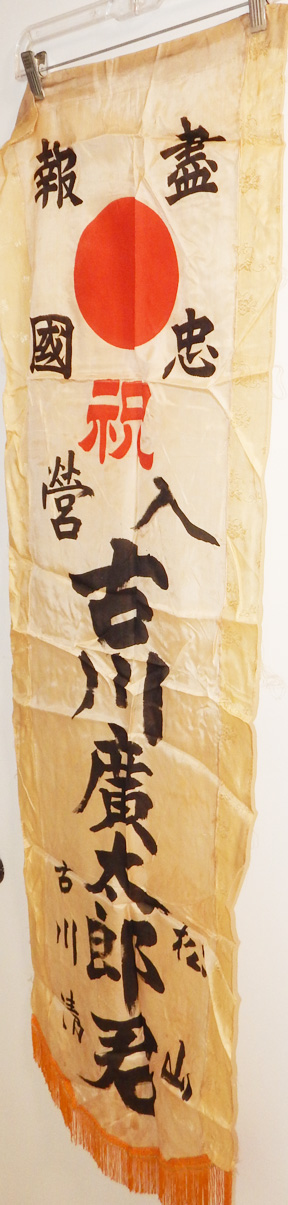 盡忠
報國
祝
入
營
古川廣太郎君
松山
古川清